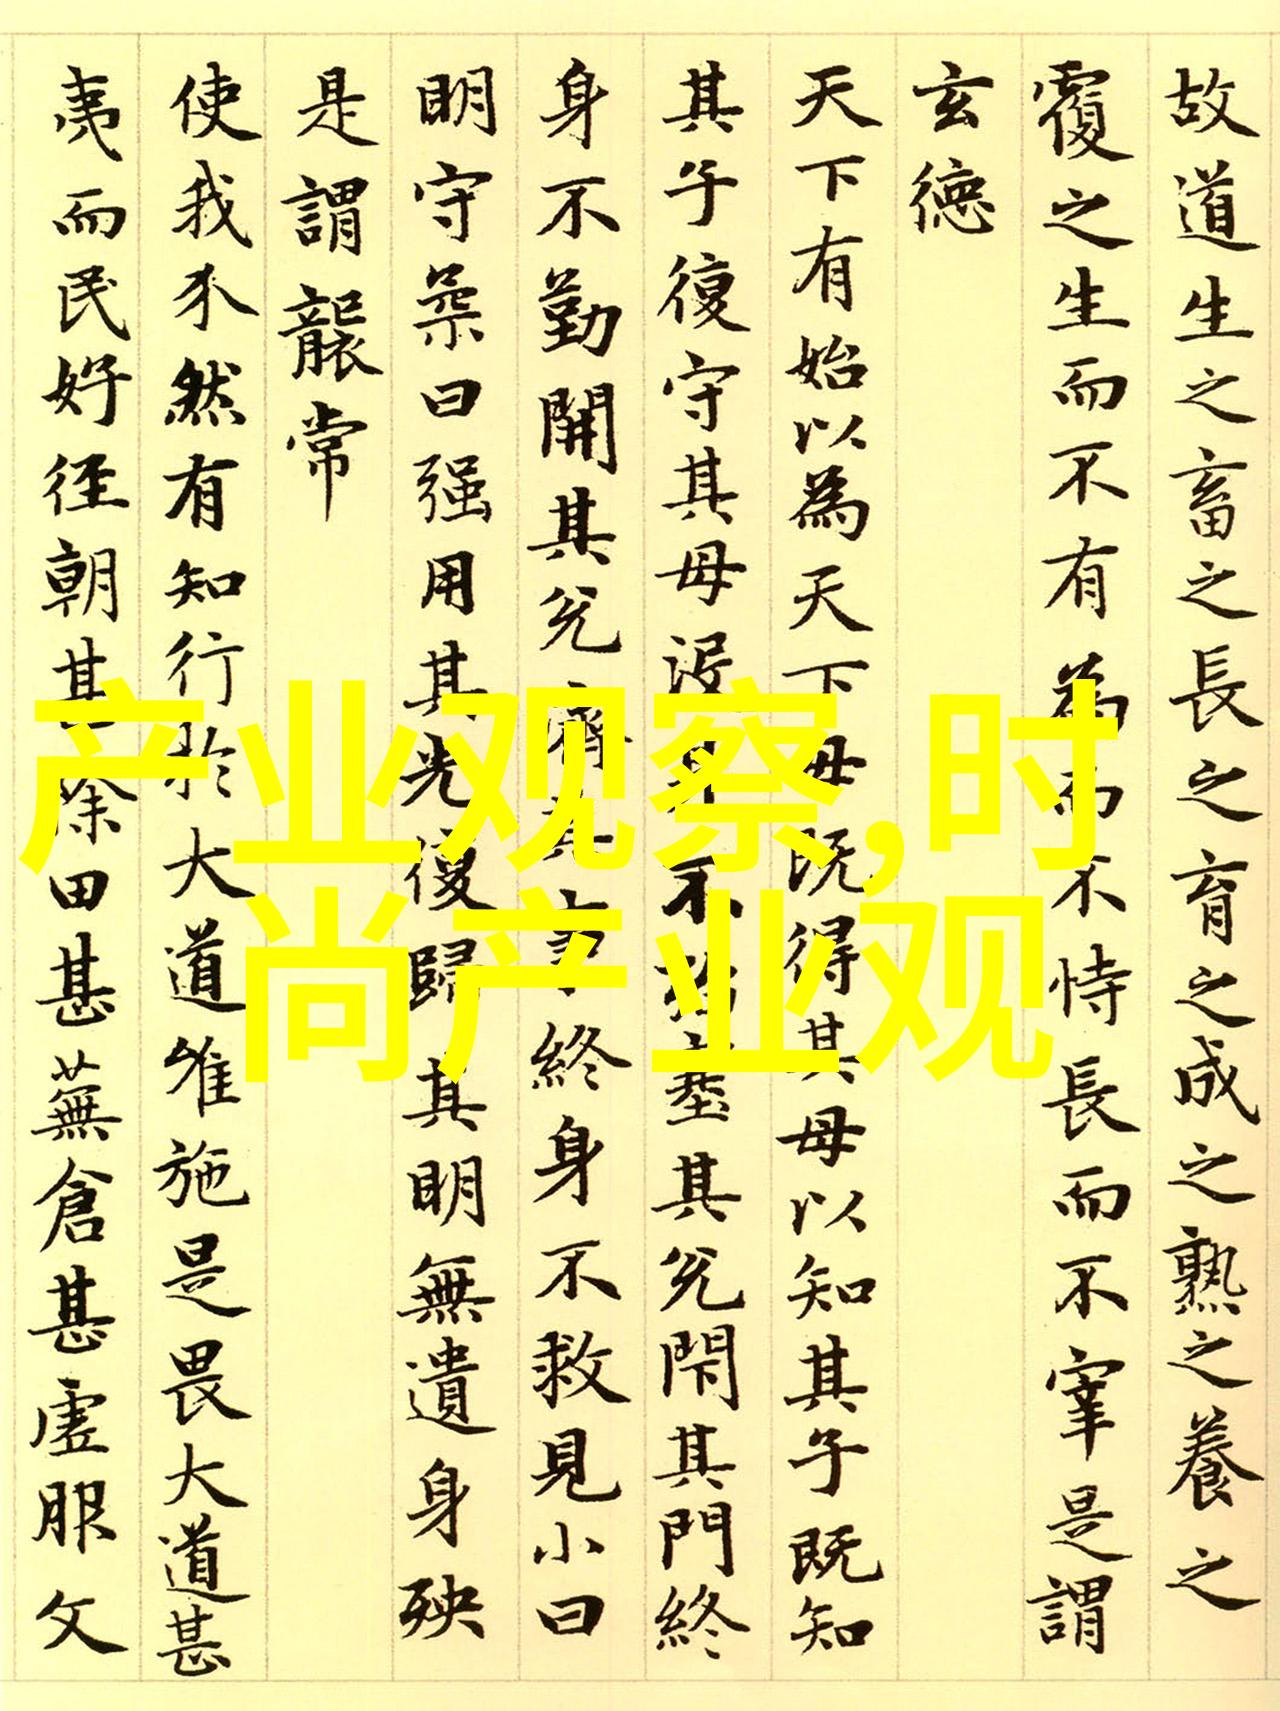 故道生之畜之長之育之成之熟之養之
覆之生而不有為而不恃長而不宰是謂
玄德
天下有始以為天下母既得其母以知其子既知
其子復守其母没身不殆塞其兊閇其門終
身不勤開其兊濟其事終身不救見小曰
明守柔曰强用其光復歸其明無遺身殃
是謂襲常
使我介然有知行於大道唯施是畏大道甚
夷而民好徑朝甚除田甚蕪倉甚虚服文
产业观察,时
尚产业观